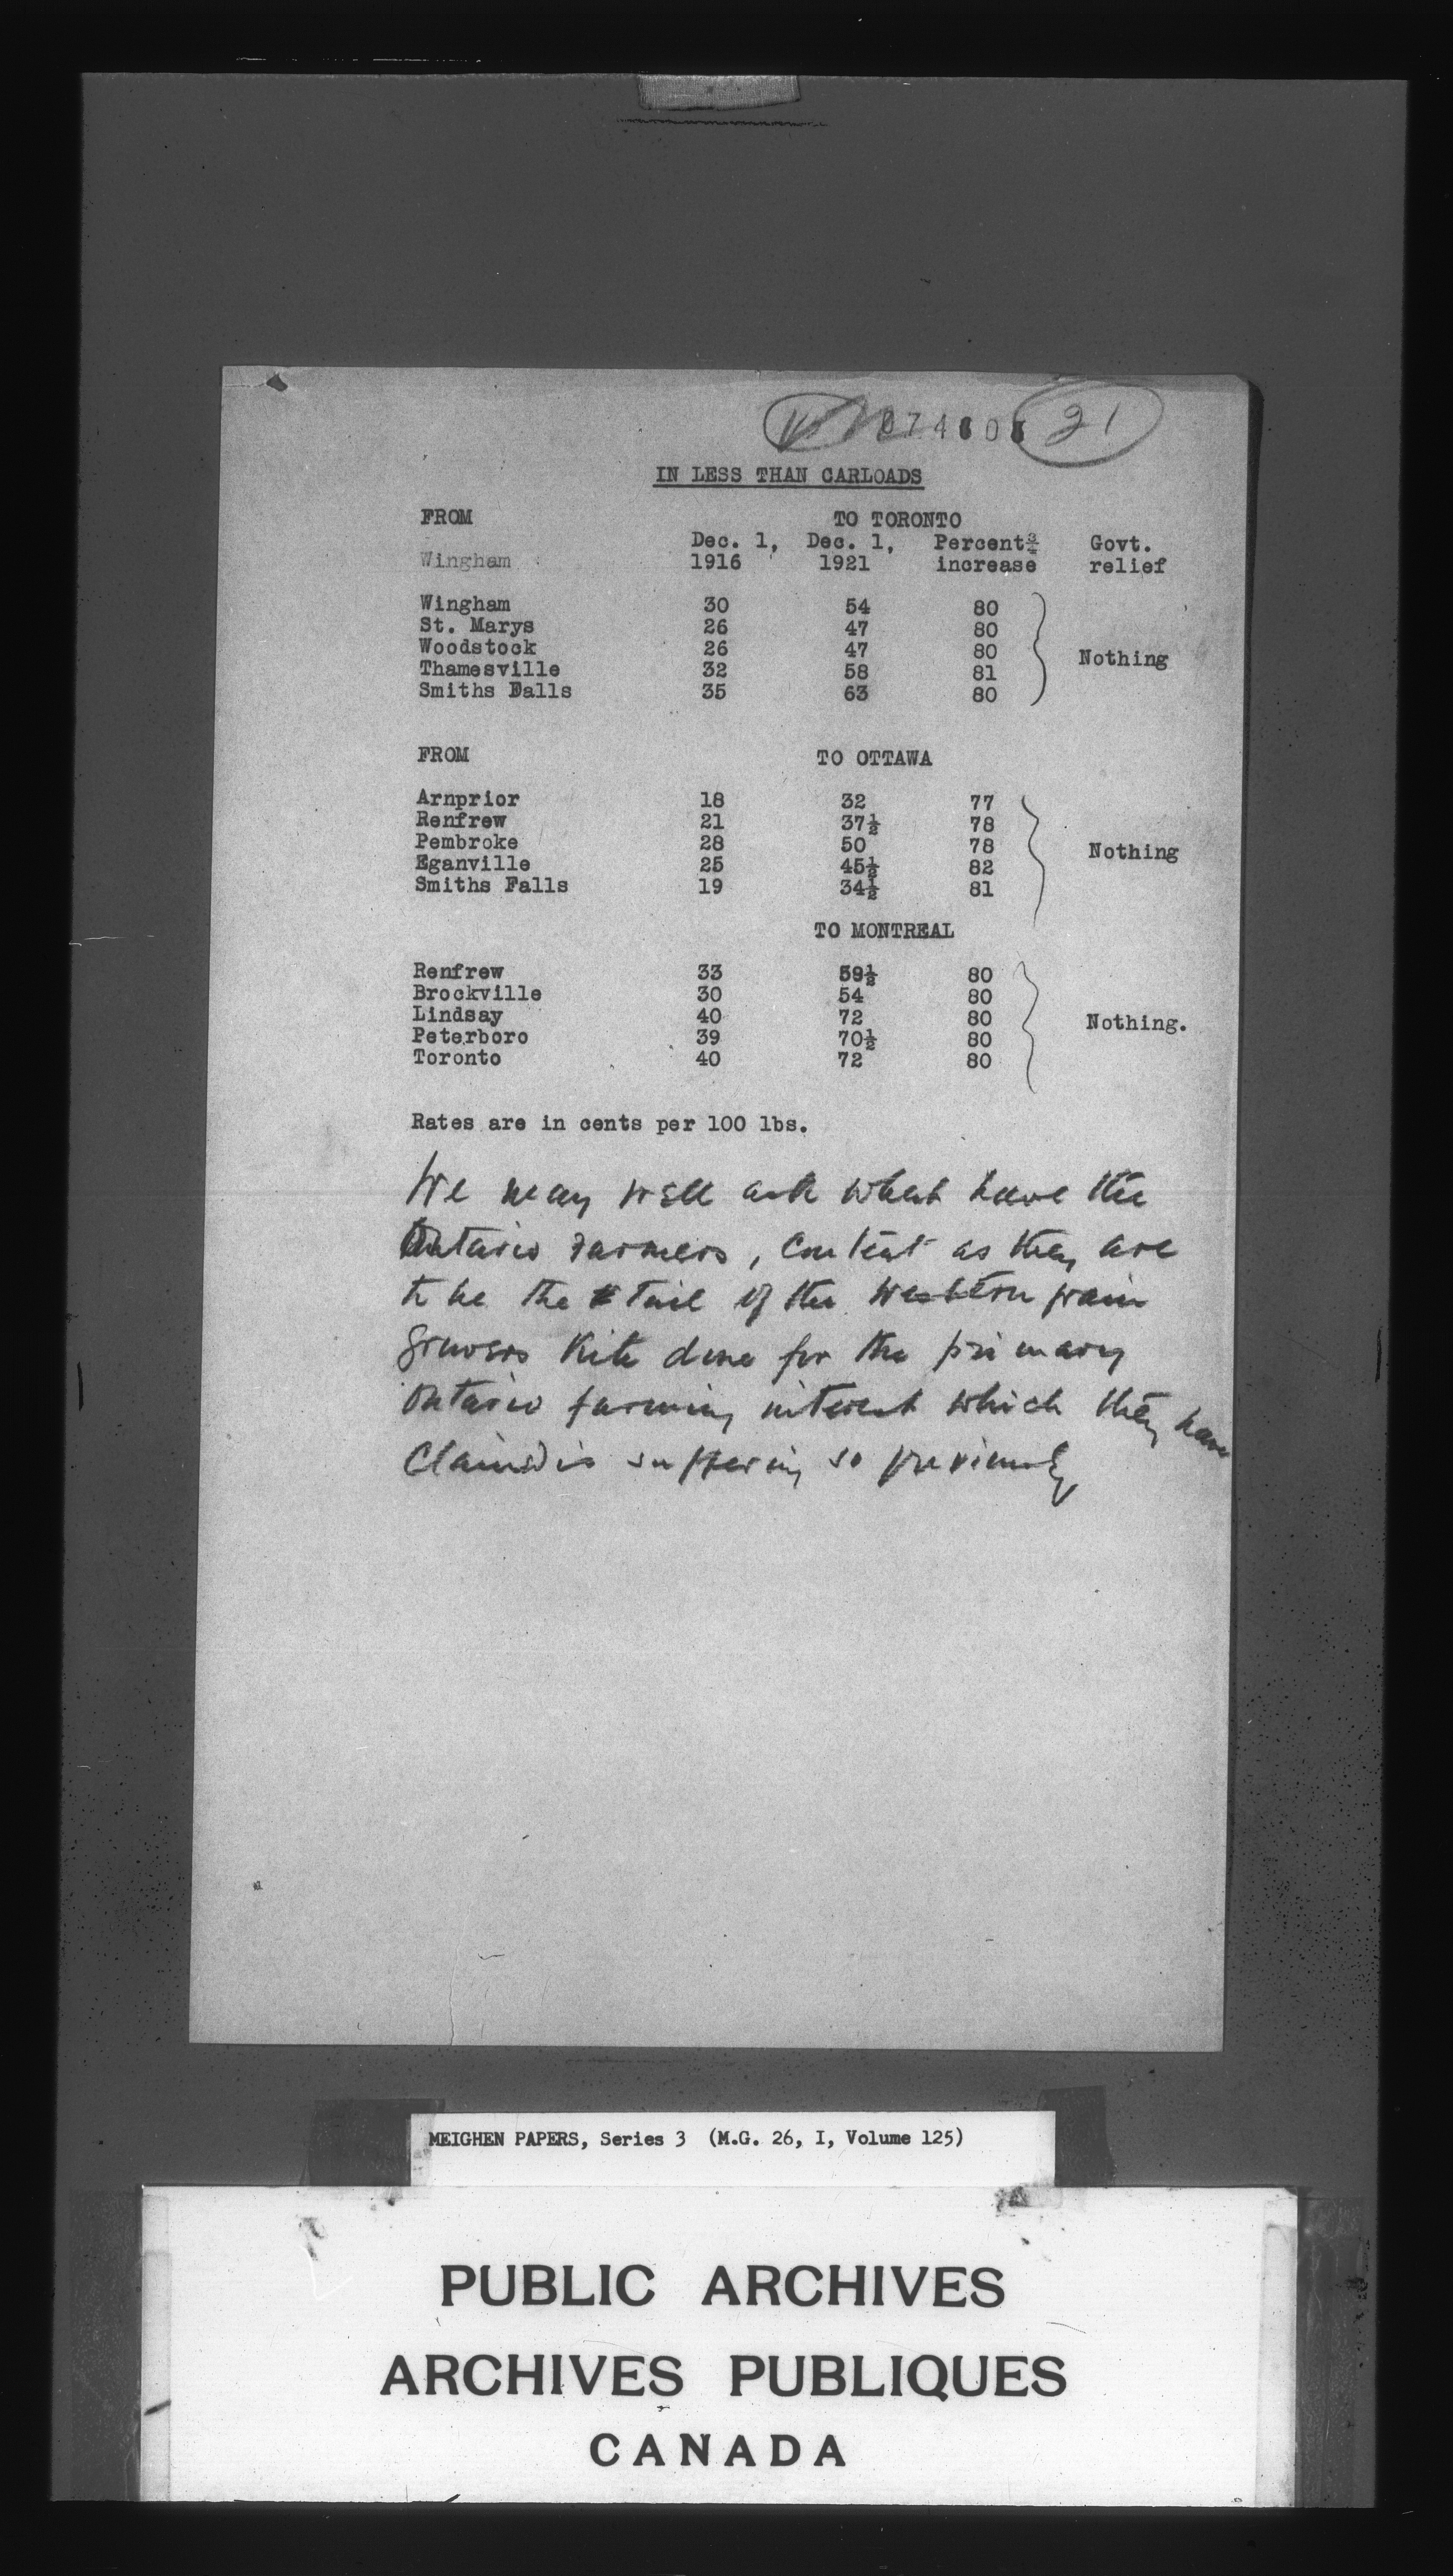 21
IN LESS THAN CARLOADS
FROM TO TORONTO
Dec. 1, Dec. 1, Percent¾ Govt.
Wingham 1916 1921 increase relief
Wingham 30 54 80
St. Marys 26 47 80
Woodstock 26 47 80 Nothing
Thamesville 32 58 81
Smiths Falls 35 63 80
FROM TO OTTAWA
Arnprior 18 32 77
Renfrew 21 37½ 78
Pembroke 28 50 78 Nothing
Eganville 25 45½ 82
Smiths Falls 19 34½ 81
TO MONTREAL
Renfrew 33 59½ 80
Brockville 30 54 80
Lindsay 40 72 80 Nothing.
Peterboro 39 70½ 80
Toronto 40 72 80
Rates are in cents per 100 lbs.
We may well ask what have the
Ontario Farmers, content as they are
to be the tail of the western grain
growers kite done for the primary
Ontario farming interest which they have
claimed is suffering so grievously
MEIGHEN PAPERS, Series 3 (M.G. 26, I, Volume 125)
PUBLIC ARCHIVES
ARCHIVES PUBLIQUES
CANADA